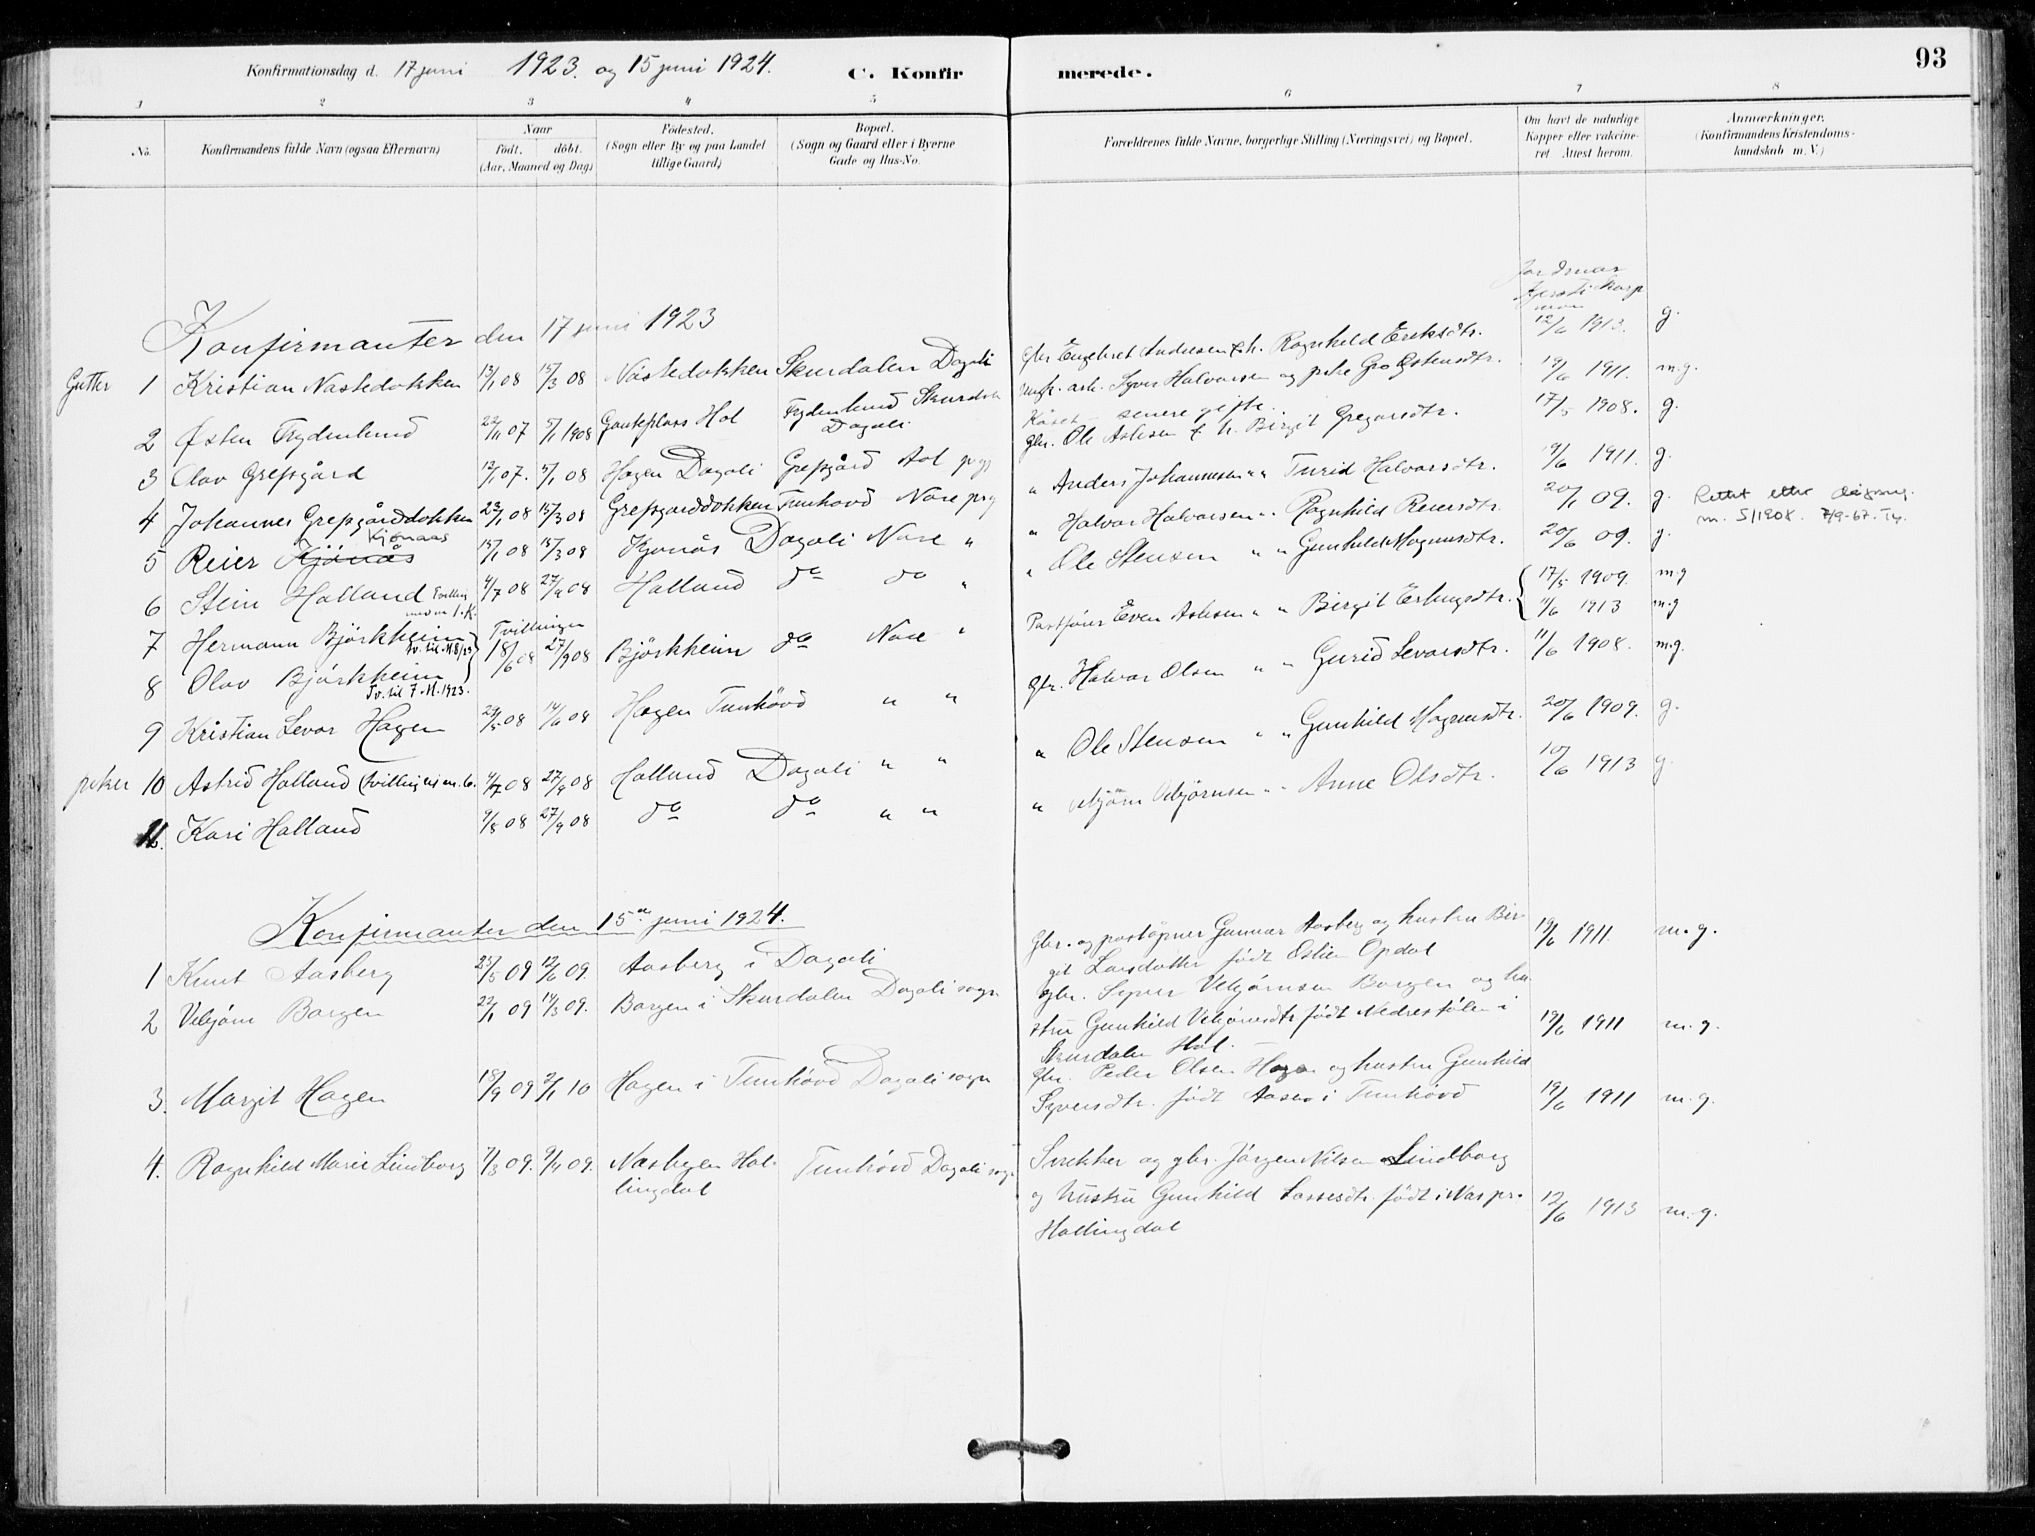 Konfirmationsdag d. 17 juni 1923. og 15 juni 1924. C. Konfir merede. 93
1 2 3 4 5 6 7 8
No. Konfirmandens fulde Navn (ogsaa Efternavn) Naar födt. döbt. (Aar, Maaned og Dag) Födested. (Sogn eller By og paa Landet tillige Gaard) Bopæl. (Sogn og Gaard eller i Byerne Gade og Hus-No. Forældrenes fulde Navne, borgerlige Stilling (Næringsvei) og Bopæl. Om havt de naturlige Kopper eller vakcineret. Attest herom. Anmærkninger. (Konfirmandens Kristendomskundskab m. V.)
Konfirmanter den 17 juni 1923
Gutter 1 Kristian Nastedokken 13/1 08 15/3 08 Nästedokken Skurdalen Dagali Gbr Engebret Andersen & h. Ragnhild Eriksdtr. 12/6 1913. g.
2 Østen Frydenlund 22/11 07 5/1 1908 Gauteplass Hol Frydenlund Skurdal Dagali ungk. arb. Syver Halvorsen og pike Gro Østensdtr. senere gifte. 19/6 1911. m.g.
3 Olav Grefsgård 12/07. 5/1 08 Hagen Dagali Grefsgård Aal prgj gbr. Ole Aslesen & h. Birgit Gregarsdtr. 17/5 1908. g.
4 Johannes Grefsgårddokken 23/1 08 15/3 08 Grefsgarddokken Tunhovd Nore prg " Anders Johannesen " " Turid Halvorsdtr. 19/6 1911. g.
5 Reier Kjönås Kjönaas 15/1 08 15/3 08 Kjonås Dagali Nore " " Halvor Halvorsen " " Ragnhild Reiersdtr. 20/1 09. g. Rettet etter
m. 5/1908. 7/9-67.
6 Stein Halland Tvilling med nr 1. K. 4/7 08 27/9 08 Halland do do " " Ole Stensen " " Gunhild Magnusdtr. 20/6 09. g.
7 Hermann Björkheim Tv. til M 8/23 Tvillinger 18/6 08 27/9 08 Björkheim do Nore " Postfører Even Aslesen " " Birgit Erlingsdtr. 17/5 1909. m.g
8 Olav Björkheim Tv. til 7. M. 1923. 11/6 1913 m.g
9 Kristian Levor Hagen 29/5 08 14/6 08 Hagen Tunhövd " " gbr. Halvor Olsen " " Gurid Levorsdtr. 11/6 1908. m.g.
piker 10 Astrid Halland (tvilling til nr. 6. 4/7 08 27/9 08 Halland Dagali " " " Ole Stensen " " Gunhild Magnusdtr. 20/6 1909. g.
11. Kari Halland 9/8 08 27/9 08 do do " " " Vebjörn Vebjørnsen " " Anne Olsdtr. 10/6 1913 g.
Konfirmanter den 15de juni 1924.
1 Knut Aasberg 23/5 09 12/6 09. Aasberg i Dagali Gbr. og poståpner Gunnar Aasberg og hustru Bir-
git Larsdatter født Oslien Opdal 19/6 1911. m.g.
2 Vebjörn Borgen 22/1 09 14/3 09. Borgen i Skurdalen Dagali sogn gbr. Syver Vebjørnsen Borgen og hu-
stru Gunhild Vebjörnsdtr. født Nedrestølen i 19/6 1911 m.g.
Skurdalen Hol.
3. Margit Hagen 18/9 09 2/1 10 Hagen i Tunhövd Dagali sogn gbr. Peder Olsen Hagen og hustru Gunhild
Syversdtr. født Aasen i Tunhövd 19/6 1911 m.g.
4. Ragnhild Marie Lindborg 7/3 09. 9/4 09. Nasbyen Hal-
lingdal Tunhövd Dagali sogn Snekker og gbr. Jörgen Nilsen Lindborg
og hustru Gunhild Larsesdtr. født i Nas pr. 12/6 1913 m.g.
Hallingdal